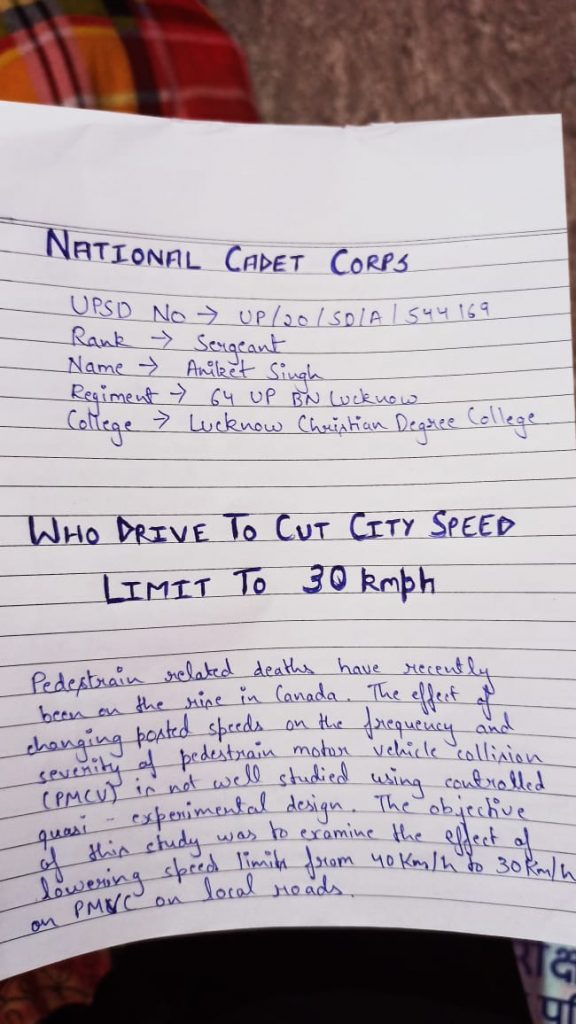 NATIONAL CADET CORPS
UPSD No → UP/20/SD/A/544169
Rank → Sergeant
Name → Aniket Singh
Regiment → 64 UP BN Lucknow
College → Lucknow Christian Degree College
WHO DRIVE TO CUT CITY SPEED
LIMIT TO 30 kmph
Pedestrain related deaths have recently
been on the rise in Canada. The effect of
changing posted speeds on the frequency and
severity of pedestrain motor vehicle collision
(PMCV) is not well studied using controlled
quasi - experimental design. The objective
of this study was to examine the effect of
lowering speed limits from 40 Km/h to 30 Km/h
on PMVC on local roads.